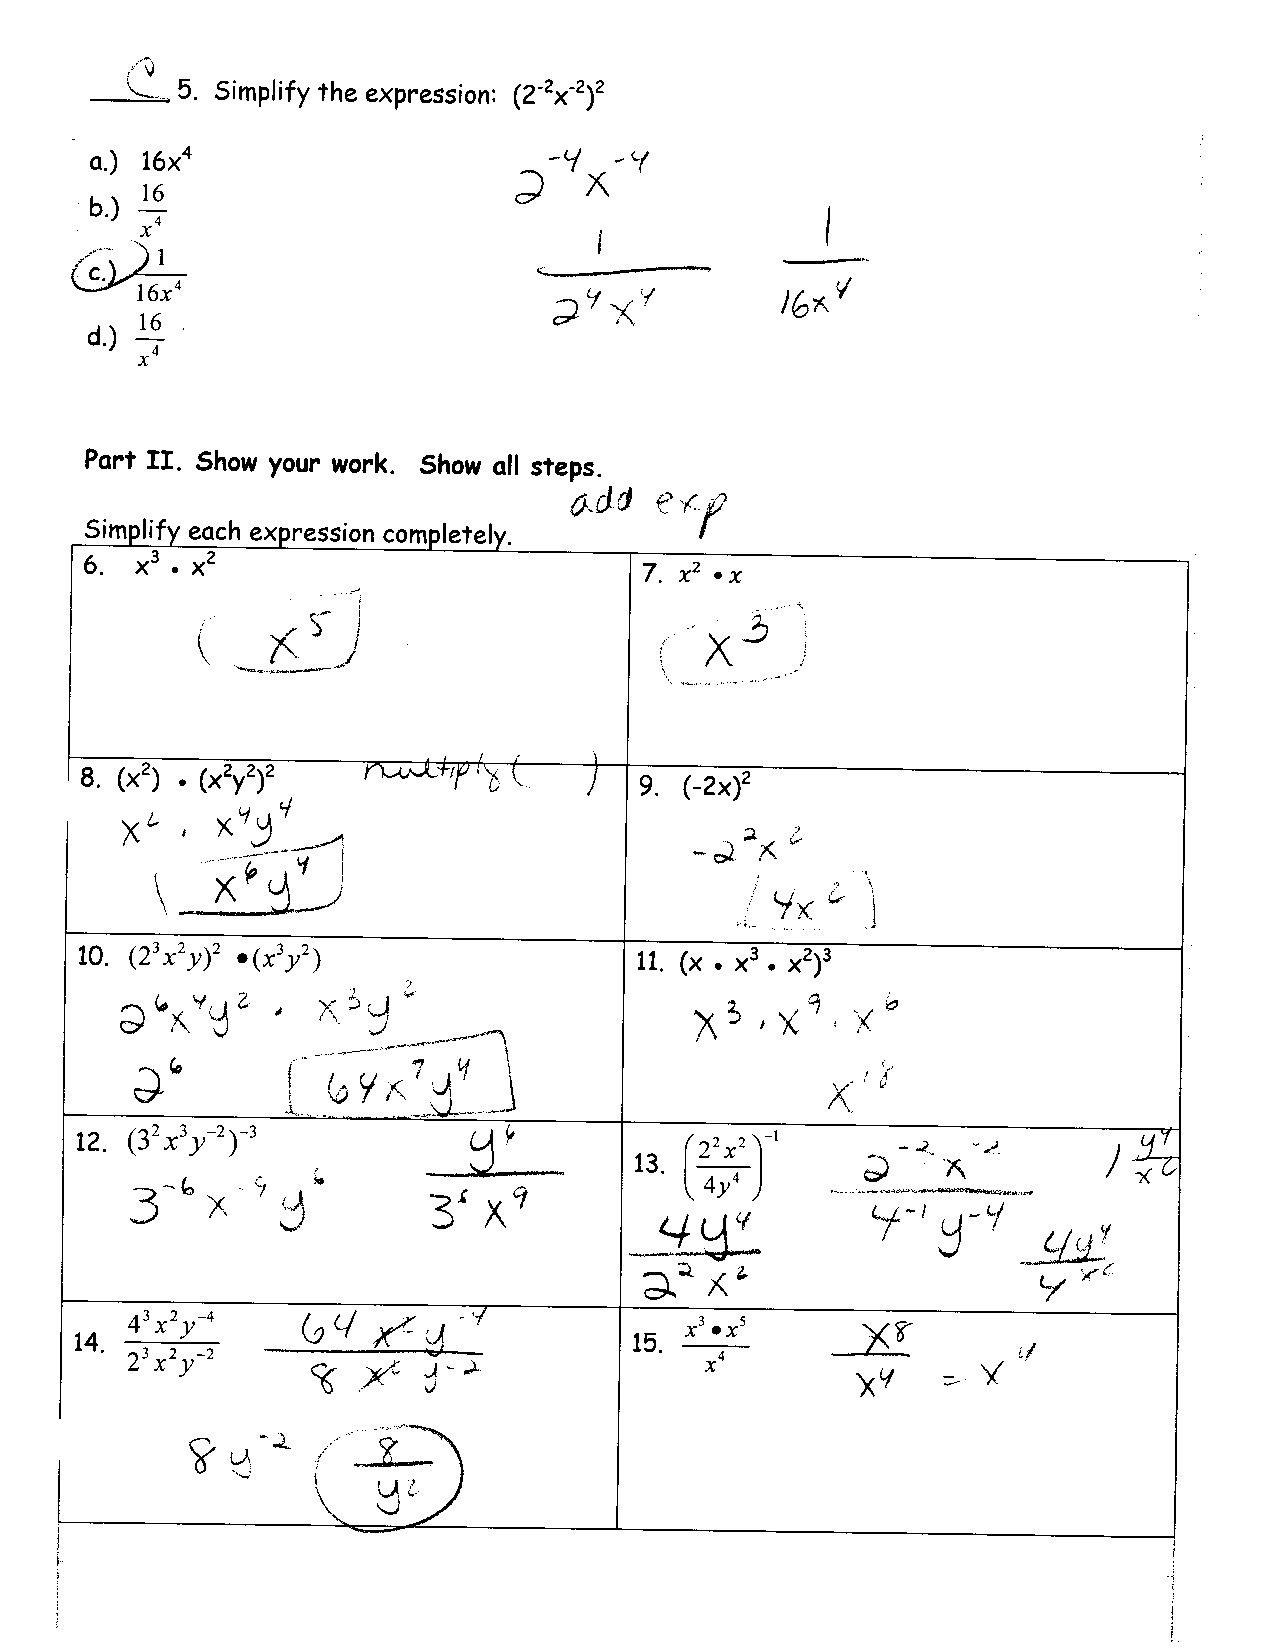 C 5. Simplify the expression: (2⁻²x⁻²)²
a.) 16x⁴
2⁻⁴x⁻⁴
b.) 16/x⁴
c.) 1/16x⁴
1/2⁴x⁴ 1/16x⁴
d.) 16/x⁴
Part II. Show your work. Show all steps.
add exp
Simplify each expression completely.
6. x³ • x²
x⁵
7. x² • x
x³
8. (x²) • (x²y²)² multiply ( )
x² . x⁴y⁴
x⁶y⁴
9. (-2x)²
-2²x²
4x²
10. (2³x²y)² •(x³y²)
2⁶x⁴y² . x³y²
2⁶ 64x⁷y⁴
11. (x • x³ • x²)³
x³ . x⁹ . x⁶
x¹⁸
12. (3²x³y⁻²)⁻³
3⁻⁶x⁻⁹y⁶ y⁶/3⁶x⁹
13. (2²x²/4y⁴)⁻¹ 2⁻²x⁻²/4⁻¹y⁻⁴ 1 y⁴/x²
4y⁴/2²x² 4y⁴/4x²
14. 4³x²y⁻⁴/2³x²y⁻² 64x²y⁻⁴/8x²y⁻²
8y⁻² 8/y²
15. x³•x⁵/x⁴ x⁸/x⁴ = x⁴